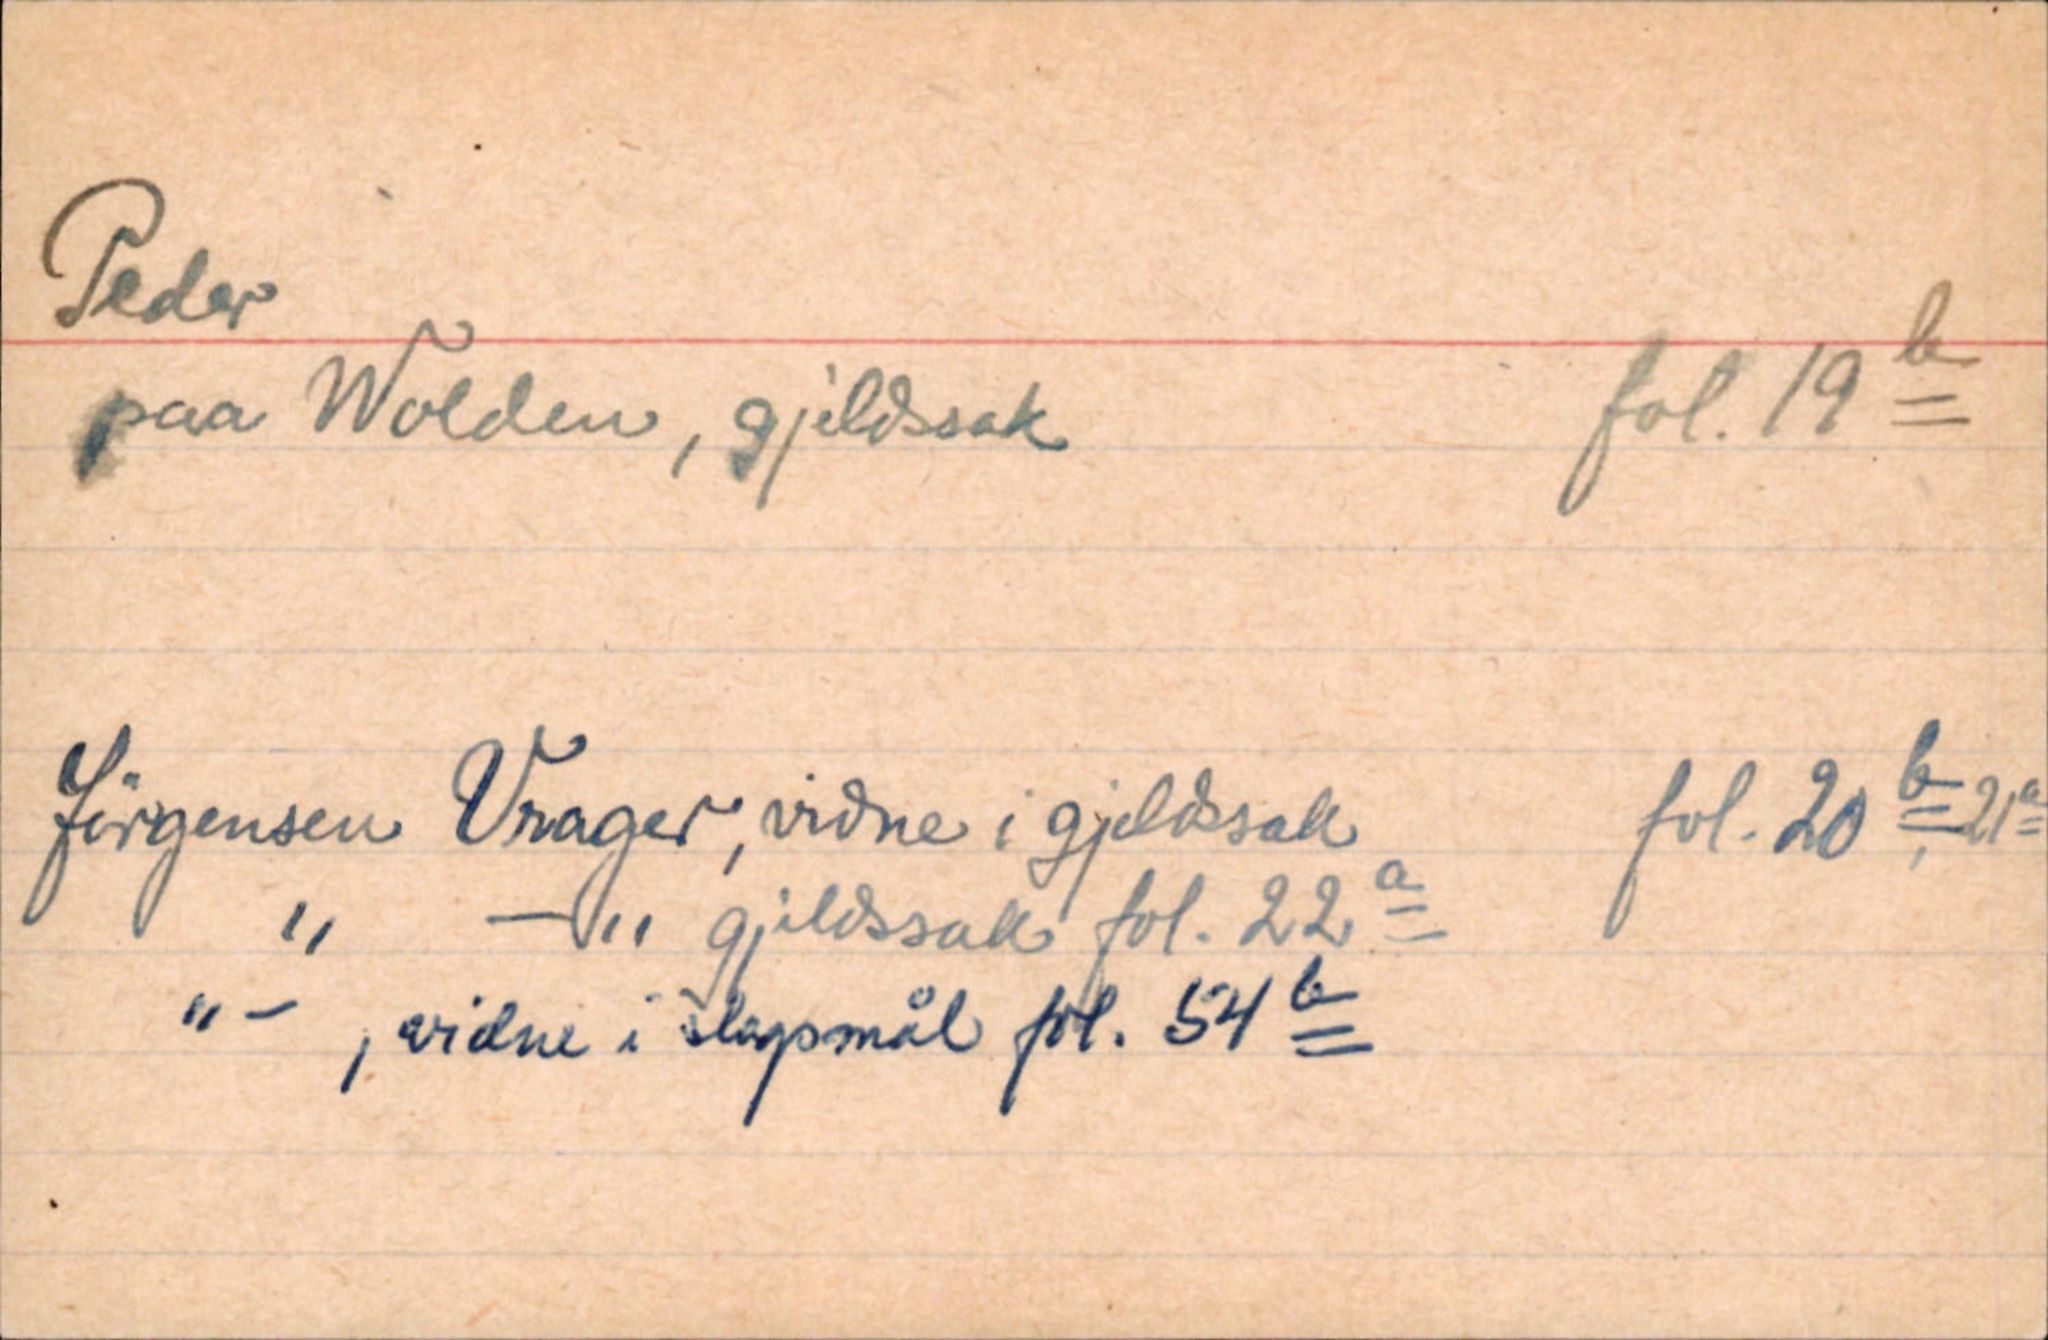 Peder
paa Wolden, gjeldssak fol. 19 b
Jörgensen Vrager, vidne i gjeldssak fol. 20 b, 21 a
" —" gjeldssak fol. 22 a
"– , vidne i slagsmål fol. 54 b